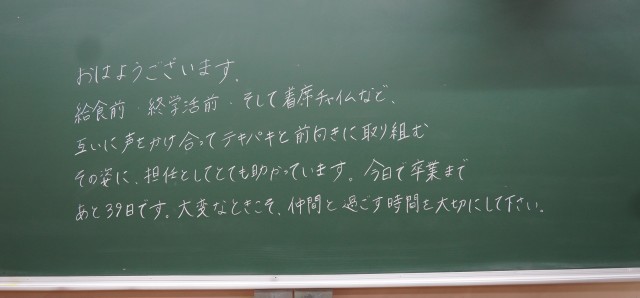 おはようございます。
給食前・終学活前・そして着席チャイムなど、
互いに声をかけ合ってテキパキと前向きに取り組む
その姿に、担任としてとても助かっています。今日で卒業まで
あと39日です。大変なときこそ、仲間と過ごす時間を大切にして下さい。